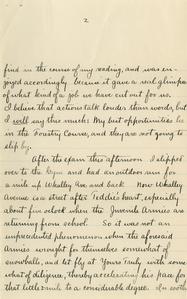 2
find in the course of my reading, and was en-
joyed accordingly because it gave a real glimpse
of what kind of a job we have cut out for us.
I believe that actions talk louder than words, but
I will say this much: My best opportunities lie
in the Forestry Course, and they are not going to
slip by.
After the exam this afternoon I slipped
over to the Gym and had an outdoor run for
a mile up Whalley Ave and back. Now Whalley
Avenue is a street after Teddie's heart, especially
about five o'clock when the Juvenile Armies are
returning from school. So it was not an
unprecedented phenomenon when the aforesaid
Armies wrought for themselves somewhat of
snowballs, and let fly at Yours truly with some-
what of diligence, thereby accelerating his pace for
that little walk to a considerable degree. In sooth